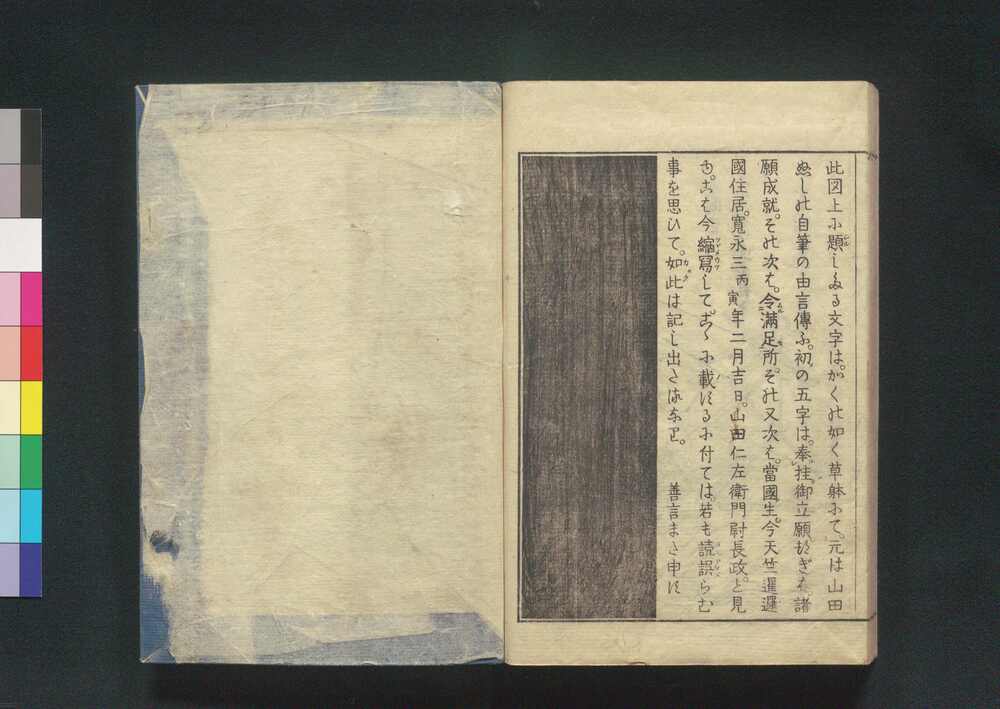 此図上尓題しゐる文字は。かくの如く草躰尓て。元は山田
ぬしの自筆の由言傳ふ。初の五字は。奉挂御立願於ぎハ諸
願成就。その次ハ。令満足所。その又次ハ。當國生。今天竺暹邏
國住居。寛永三丙寅年二月吉日。山田仁左衛門尉長政。と見
ゆ。こハ今縮冩して。こゝ尓載する尓付ては。若も読誤らむ
事を思ひて。如此は記し出たるなり。　善言また申す